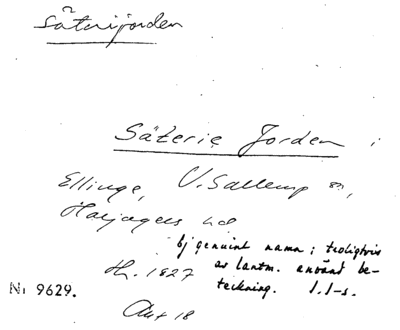 Säterijorden
Säterie Jorden i
Ellinge, V. Sallerup sn,
Harjagers hd
Ej genuint namn; troligtvis
Hk. 1827 av lantm. använt be-
teckning. I.I-s.
Nr 9629.
Akt 18